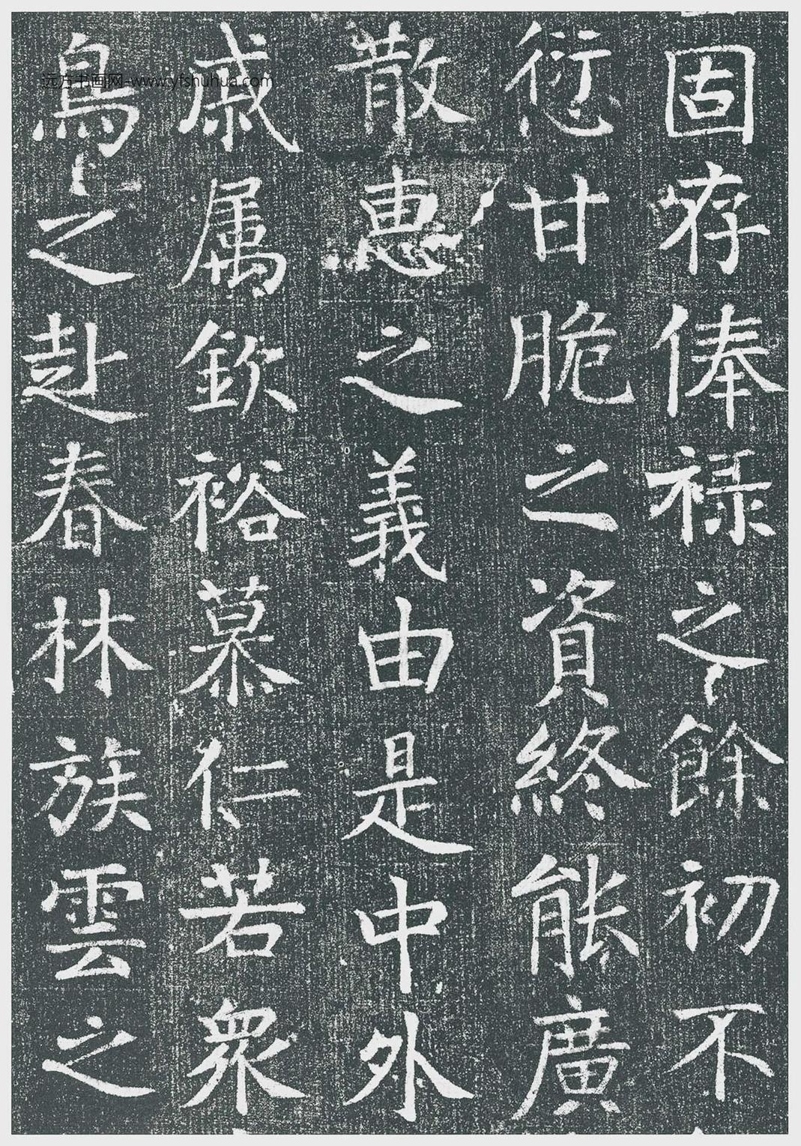 固存俸禄之餘初不
衍愆甘脆之資終能廣
散惠之義由是中外
戚属欽裕慕仁若衆
鳥之赴春林族雲之
远方书画网-www.yfshuhua.com